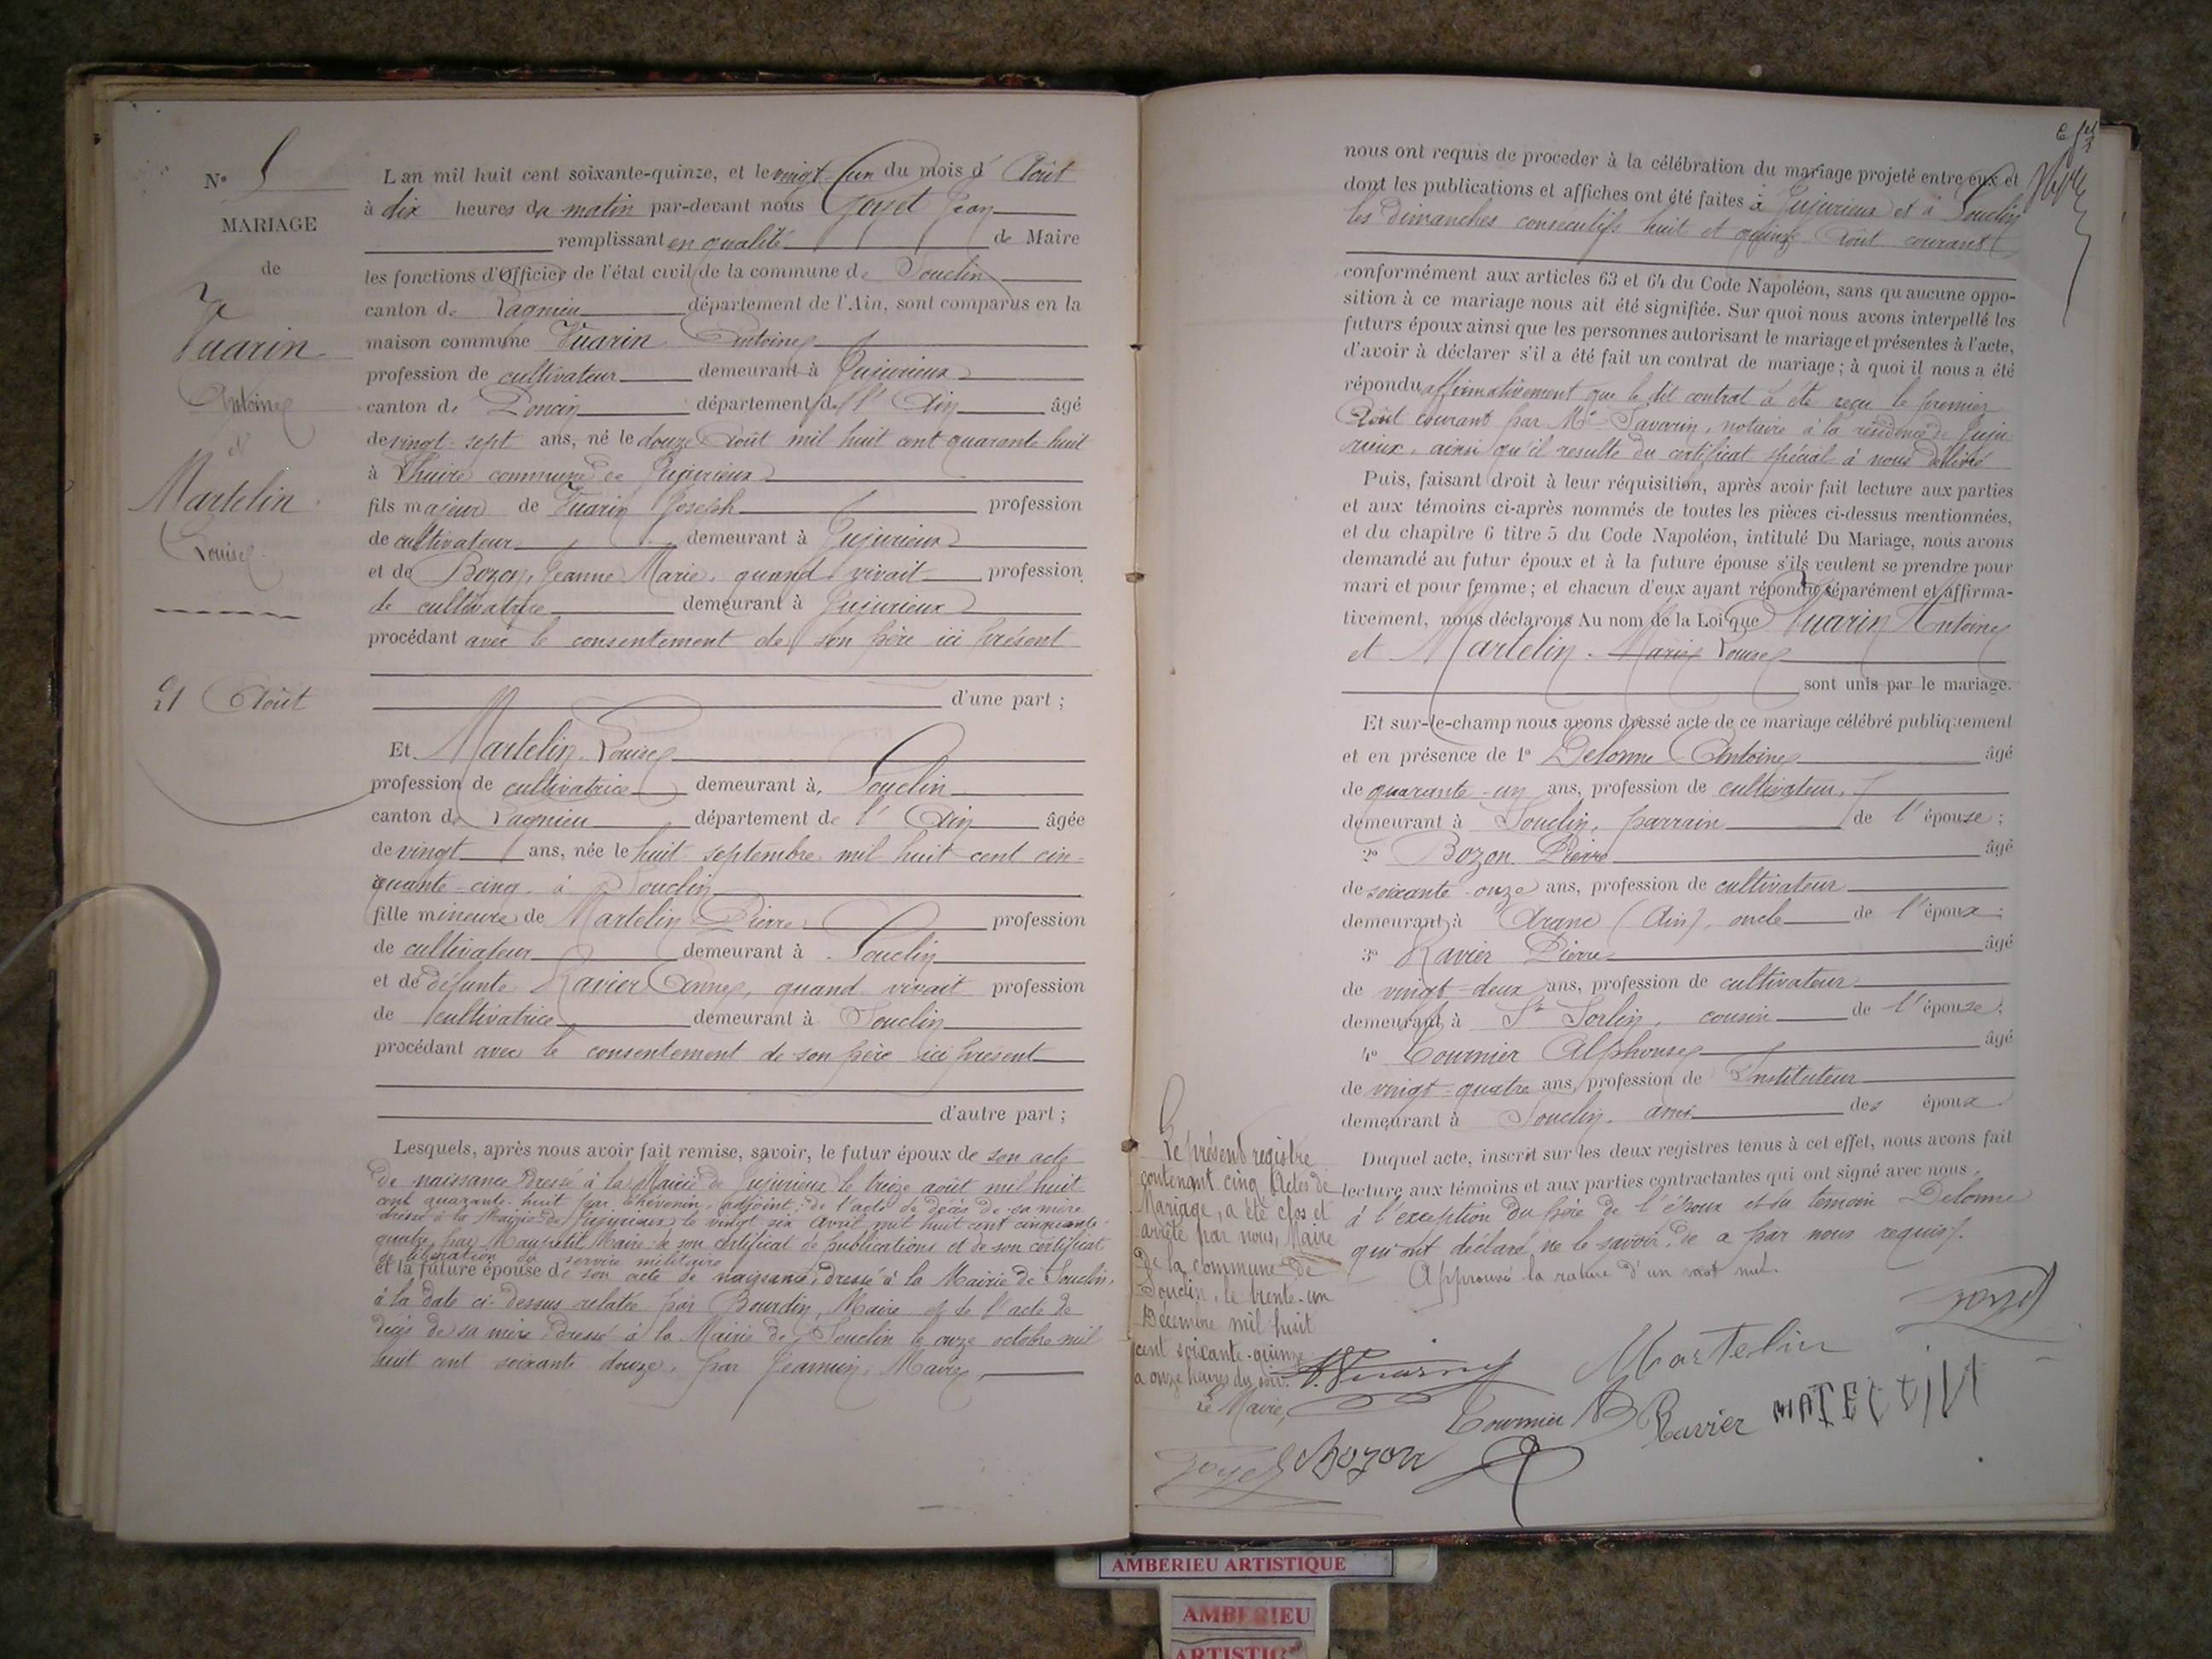 N° 5
MARIAGE
de
Vuarin
Antoine
et
Martelin
Louise
21 Août
L an mil huit cent soixante-quinze, et le vingt-un du mois d' Août
à dix heures du matin par-devant nous Goyet Jean
remplissant en qualité de Maire
les fonctions d'Officier de l'état civil de la commune de Souclin
canton de Lagnieu département de l'Ain, sont comparus en la
maison commune Vuarin Antoine
profession de cultivateur demeurant à Jujurieux
canton de Poncin département de l' Ain âgé
de vingt-sept ans, né le douze Août mil huit cent quarante huit
à Chaux commune de Jujurieux
fils majeur de Vuarin Joseph profession
de cultivateur demeurant à Jujurieux
et de Bozon, Jeanne Marie, quand vivait profession
de cultivatrice demeurant à Jujurieux
procédant avec le consentement de son père ici présent
d'une part ;
Et Martelin Louise
profession de cultivatrice demeurant à, Souclin
canton de Lagnieu département de l' Ain âgée
de vingt ans, née le huit septembre mil huit cent cin-
quante-cinq à Souclin
fille mineure de Martelin Pierre profession
de cultivateur demeurant à Souclin
et de défunte Ravier Anne, quand vivait profession
de cultivatrice demeurant à Souclin
procédant avec le consentement de son père ici présent
d'autre part ;
Lesquels, après nous avoir fait remise, savoir, le futur époux de son acte
de naissance dressé à la Mairie de Jujurieux le treize août mil huit
cent quarante-huit par Thévenin, adjoint, de l'acte de décès de sa mère
dressé à la Mairie de Jujurieux le vingt six avril mil huit cent cinquante-
quatre, par Maupetit Maire de son certificat de publications et de son certificat
de libération du service militaire
et la future épouse de son acte de naissance, dressé à la Mairie de Souclin,
à la date ci-dessus relatée par Bourdin, Maire et de l'acte de
décès de sa mère, dressé à la Mairie de Souclin le onze octobre mil
huit cent soixante douze, par Jeannin, Maire
nous ont requis de proceder à la célébration du mariage projeté entre eux et
dont les publications et affiches ont été faites à Jujurieux et à Souclin
les dimanches consecutifs huit et quinze Août courant
conformément aux articles 63 et 64 du Code Napoléon, sans qu aucune oppo-
sition à ce mariage nous ait été signifiée. Sur quoi nous avons interpellé les
futurs époux ainsi que les personnes autorisant le mariage et présentes à l'acte,
d'avoir à déclarer s'il a été fait un contrat de mariage ; à quoi il nous a été
répondu affirmativement que le dit contrat à été reçu le premier
Août courant par Me Savarin, notaire à la résidence de Juju-
rieux, ainsi qu'il resulte du certificat spécial à nous délivré
Puis, faisant droit à leur réquisition, après avoir fait lecture aux parties
et aux témoins ci-après nommés de toutes les pièces ci-dessus mentionnées,
et du chapitre 6 titre 5 du Code Napoléon, intitulé Du Mariage, nous avons
demandé au futur époux et à la future épouse s'ils veulent se prendre pour
mari et pour femme ; et chacun d'eux ayant répondu séparément et affirma-
tivement, nous déclarons Au nom de la Loi que Vuarin Antoine
et Martelin Marie Louise
sont unis par le mariage.
Et sur-le-champ nous avons dressé acte de ce mariage célébré publiquement
et en présence de 1° Delorme Antoine âgé
de quarante-un ans, profession de cultivateur,
demeurant à Souclin, parrain de l'épouse ;
2° Bozon Pierre âgé
de soixante-onze ans, profession de cultivateur
demeurant à Aranc (Ain), oncle de l'époux ;
3° Ravier Pierre âgé
de vingt-deux ans, profession de cultivateur
demeurant à St Sorlin, cousin de l'épouse ;
4° Tournier Alphonse âgé
de vingt-quatre ans, profession de Instituteur
demeurant à Souclin, ami des époux
Duquel acte, inscrit sur les deux registres tenus à cet effet, nous avons fait
lecture aux témoins et aux parties contractantes qui ont signé avec nous,
à l'exception du père de l'époux et du temoin Delorme
qui ont déclaré ne le savoir, de a par nous requis.
Approuvé la rature d'un mot nul.
Le présent registre
contenant cinq Actes de
Mariage, a été clos et
arrêté par nous, Maire
de la commune de
Souclin, le trente-un
Décembre mil huit
cent soixante-quinze
à onze heures du soir.
Le Maire,
Goyet
Goyet
Martelin
A. Vuarin
Tournier A
Ravier
Bozon
AMBERIEU ARTISTIQUE
AMBERIEU
ARTISTIQUE